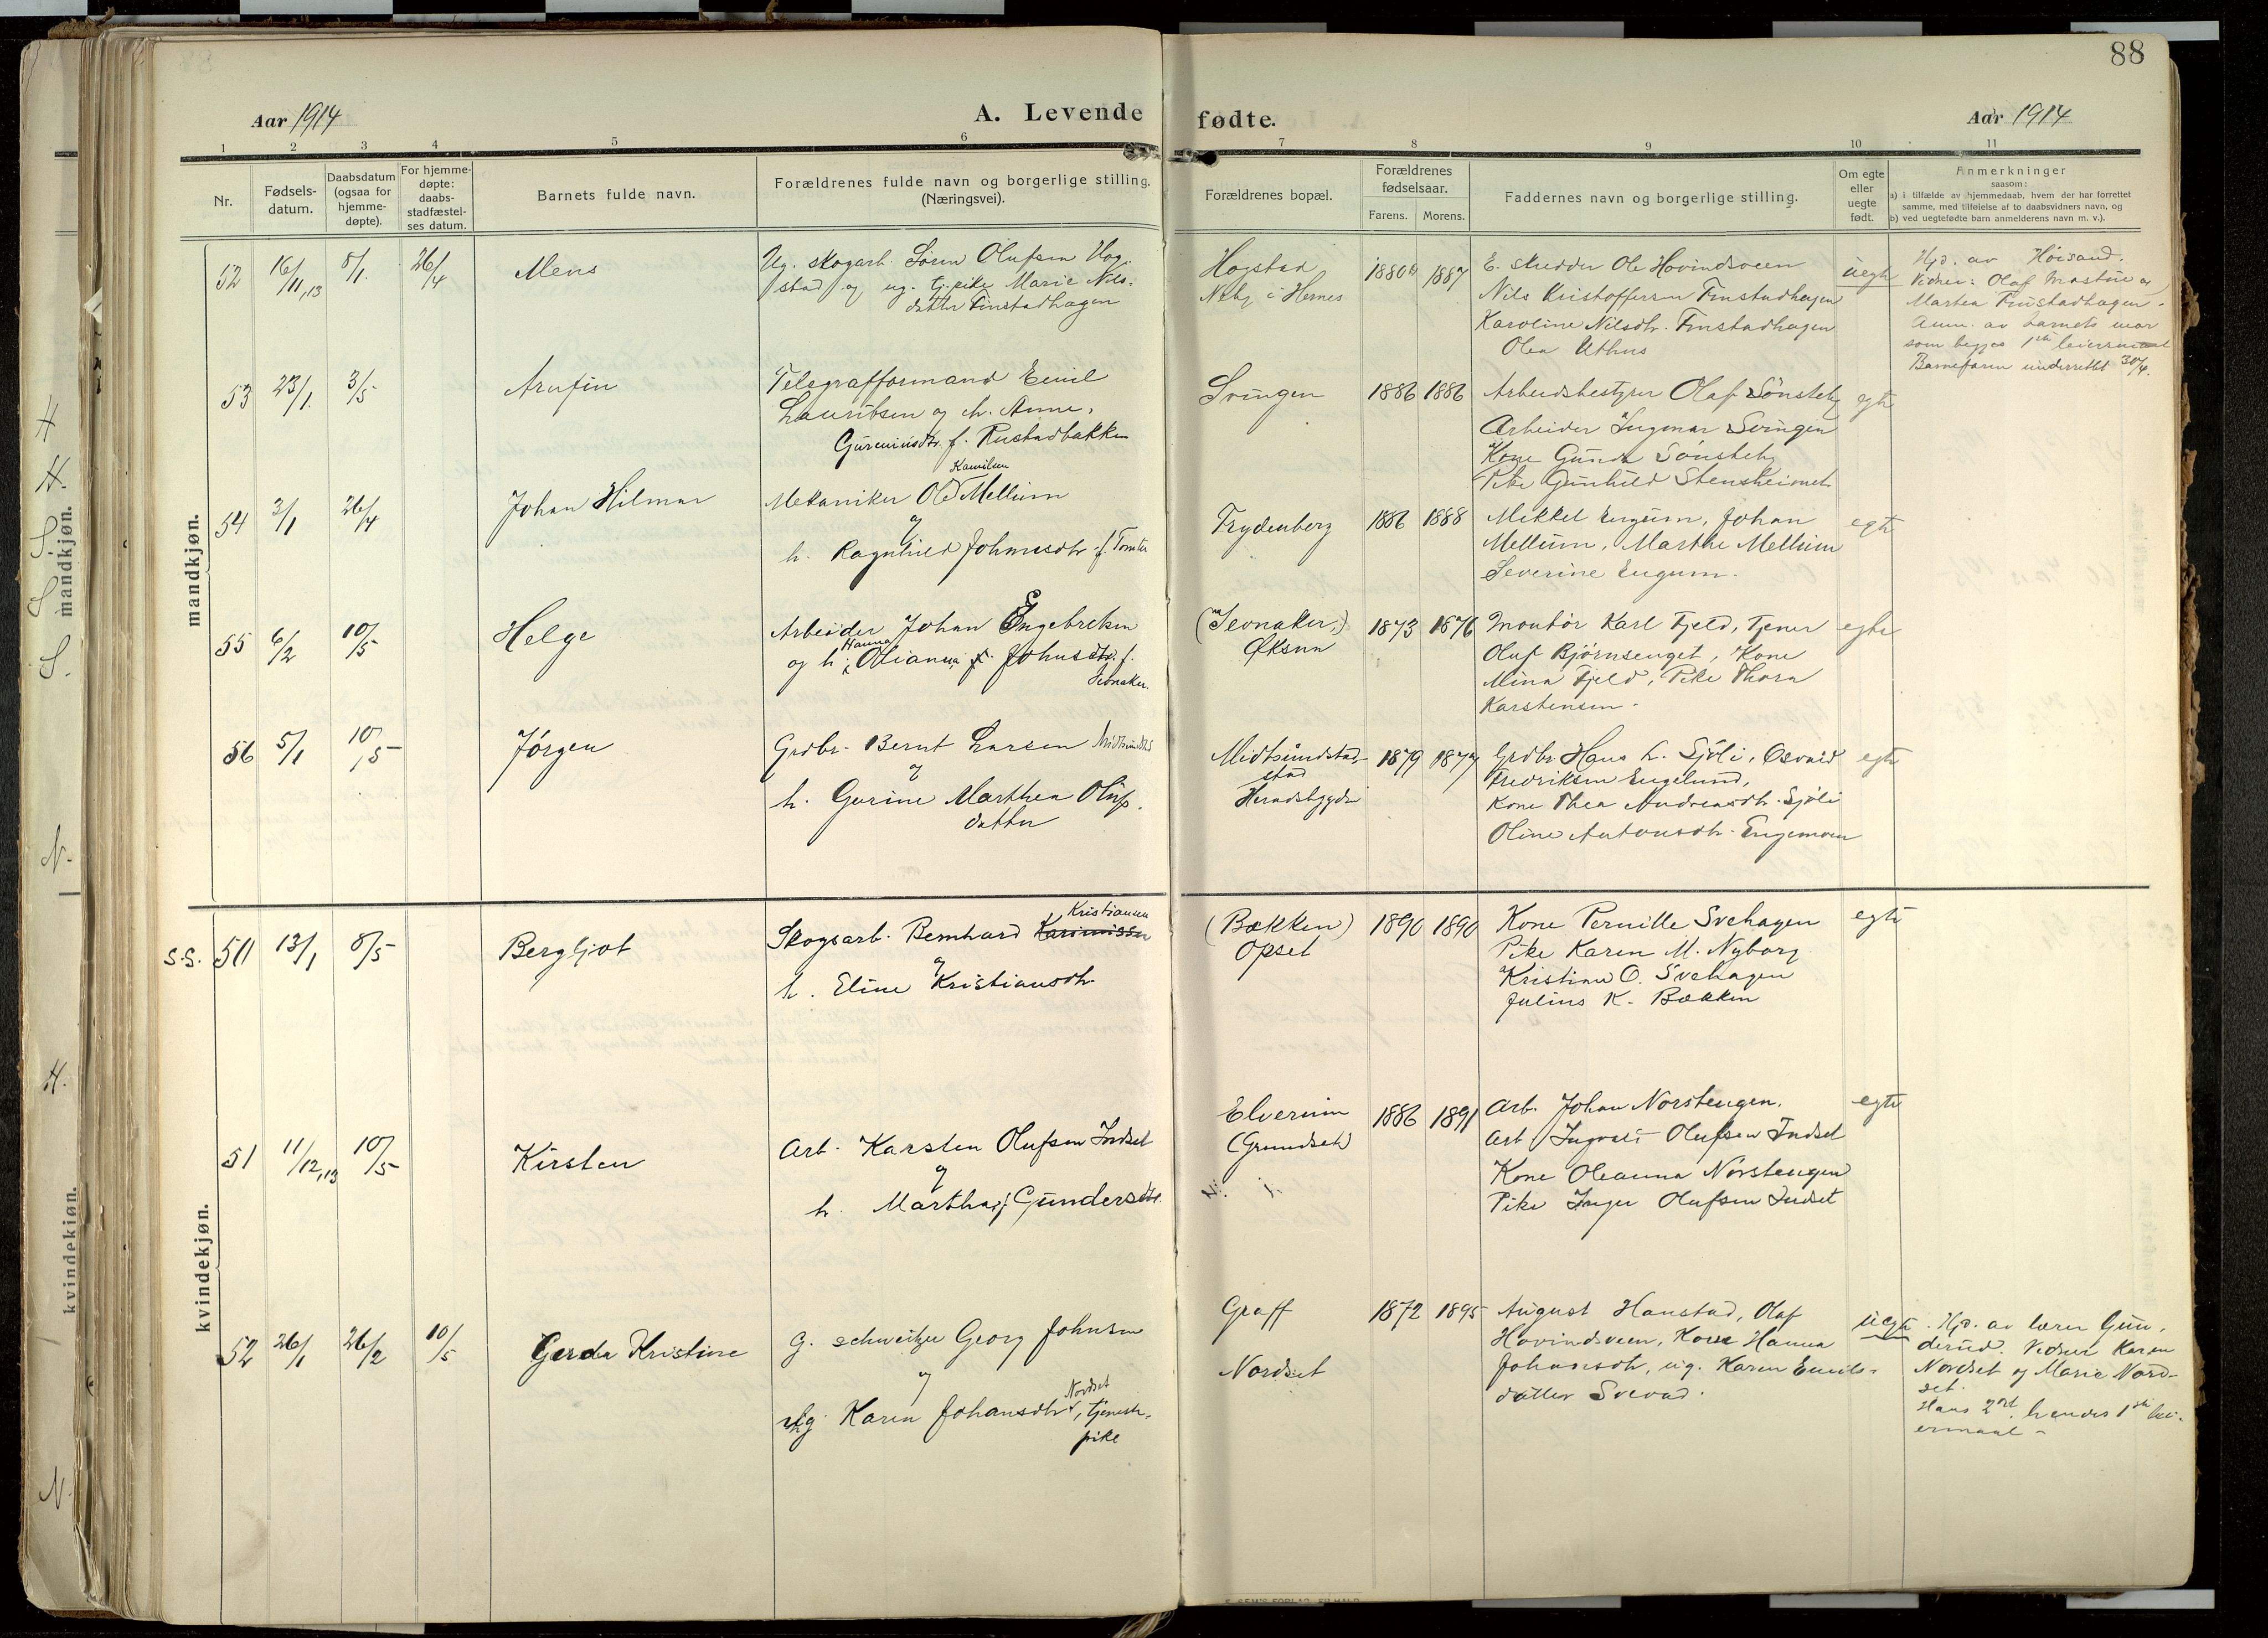 88
Aar 1914
A. Levende
fødte.
Aar 1914
1 2 3 4 5 6 7 8 9 10 11
Nr.
Fødsels-
datum.
Daabsdatum
(ogsaa for
hjemme-
døpte).
For hjemme-
døpte:
daabs-
stadfæstel-
ses datum.
Barnets fulde navn.
Forældrenes fulde navn og borgerlige stilling.
(Næringsvei).
Forældrenes bopæl.
Forældrenes
fødselsaar.
Farens. Morens.
Faddernes navn og borgerlige stilling.
Om egte
eller
uegte
født.
Anmerkninger
saasom:
a) i tilfælde av hjemmedaab, hvem der har forrettet
samme, med tilføielse af to daabsvidners navn, og
b) ved uegtefødte barn anmelderens navn m. v.).
mandkjøn.
52 16/11,13 8/1. 26/4 Mens
Ug. skogarb. Søren Olufsen Hog-
stad og ug. tj.pike Marie Nils-
datter Finstadhagen
Hogstad
Neby i Hernes
1880 1887
E. skredder Ole Hovindsveen
Nils Kristoffersen Finstadhagen
Karoline Nilsdtr. Finstadhagen
Olea Uthus
uegte
Hjd. av Høisand.
Vidner: Olaf Mastue og
Martea Finstadhagen.
Anm. av barnets mor
som begges 1ste leiermaal
Barnefaren underrettet 30/4.
53 23/1. 3/5 Arnfin
Telegrafformand Emil
Lauritsen og h. Anne
f. Rustadbakken
Svingen
1886 1886
Arbeidsbestyrer Olaf Sönsteby
Arbeider Ingmar Svingen
Kone Gunda Sönsteby
Pike Gunhild Stensheimet
egte
54 3/1 26/4 Johan Hilmar
Kamilen
Mekaniker Ole Mellum
og
h. Ragnhild Johnsdtr. f. Tomter
Frydenberg
1886 1888
Mikkel Engum, Johan
Mellum, Marthe Mellum
Severine Engum.
egte
55 6/2 10/5 Helge
Arbeider Johan Engebretsen
Hanna
og h. Olianna f. Johnsdtr. f.
Sevnaker.
(Sevnaker)
Øksna
1873 1876
Montör Karl Fjeld, Tjener
Oluf Björnsenget, Kone
Mina Fjeld, Pike Thora
Karstensen.
egte
56 5/1 10/5 Jørgen
Grdbr. Bernt Larsen
og
h. Gurine Marthea Oluf-
datter
Midtsundstad
stad
Heradsbygden
1879 1877
Grdbr. Hans L. Sjöli, Osvald
Fredriksen Engelund,
Kone Thea Andreasdtr. Sjöli
Oline Antonsdtr. Engemoen
egte
kvindekjøn.
S.S. 50 13/1 8/5 Bergljot
Kristiansen
Skogsarb. Bernhard
og
h. Eline Kristiansdtr
(Bækken)
Opset
1890 1890
Kone Pernille Svehagen
Pike Karen M. Nyborg
Kristian O. Svehagen
Julius K. Bækken
egte
51 11/12,13 10/5 Kirsten
Arb. Karsten Olufsen Indset
og
h. Martha f. Gundersdtr.
Elverum
(Grundset)
1886 1891
Arb. Johan Norstengen.
Arb Ingvald Olufsen Indset
Kone Oleanna Norstengen
Pike Inger Olufsen Indset
egte
52 26/1 26/2 10/5 Gerda Kristine
G. schweitzer Georg Johnsen
og
ug. Karen Johansdtr Nordset, tjeneste-
pike
Graff
Nordset
1872 1895
August Hanstad, Olaf
Hovindsveen, Kone Hanna
Johansdtr, ug. Karen Emils-
datter Svevad.
uegte
Hjd. av lærer Gun-
derud. Vidner Karen
Nordset og Marie Nord-
set.
Hans 2det hendes 1ste lei-
ermaal
mandkjøn.
kvindekjøn.
H
H.
S
S
S.
N.
H.
N.